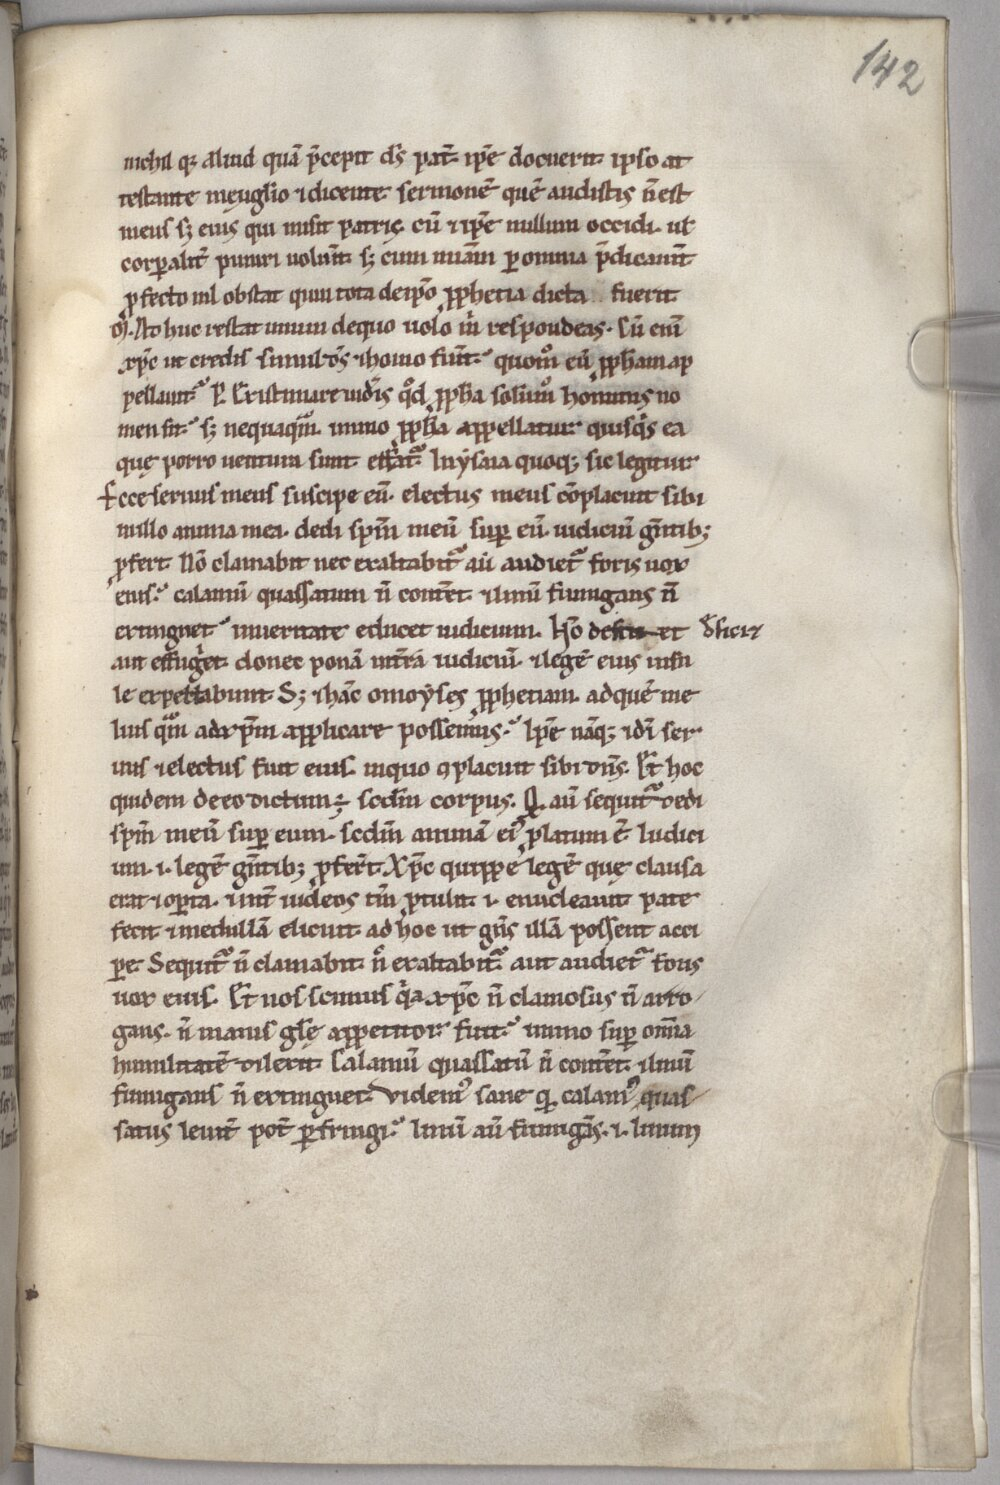 142
nichil q; aliud quā p̄cepit ds̄ pat̄ ip̄e docuerit ipso at
testante in euglio ⁊ dicente sermonē quē audistis n̄ est
meus s; eius qui misit patris. cū ⁊ ip̄e nullum occidi. ut
corꝑalit̄ puniri uolu̅it. s; cum ꝑ omnia p̄dicauit̄
ꝓfecto nil obstat quin tota de ip̄o ꝓphetia dicta fuerit
M. Ad huc restat unum de quo uolo m̄ respondeas. Cū enī
xp̄c ut credis simul ds̄ ⁊ homo fu̅it. quomo eū ꝓph̄am ap
pellauit. P. Existimare uideris qd̄ ꝓph̄a solum hominis no
men sit. s; nequaquā. immo ꝓph̄a appellatur quisq̇s ea
quę porro uentura sunt effat̄. In ysaia quoq; sic legitur
Ecce seruus meus suscipe eū. electus meus cōplacuit sibi
in illo anima mea. dedi sp̄m meū suꝑ eū. iudiciū gn̄tib;
ꝓfert. Nō clamabit nec exaltabit̄ aū audiet̄ foris uox
eius. calamū quassatum n̄ conteret ⁊ linū fumigans n̄
extinguet in ueritate educet iudicium. Nō et deficiet
aut effug̅et donec ponā in tr̄ra iudiciū. ⁊ legē eius insu
le expectabunt. S; ⁊ hāc o moyses ꝓphetiam ad quē me
lius quā ad xp̄m applicare possemus. Ip̄e nāq; ⁊ di ser
uus ⁊ electus fuit eius. in quo ꝯplacuit sibi dn̄s. Et hoc
quidem de eo dictum ÷ scd̄m corpus. Q aū sequit̄ dedi
sp̄m meū suꝑ eum. scd̄m animā ei ꝓlatum ē. Iudici
um .i. legē gn̄tib; ꝓfert̄. Xp̄c quippe legē quę clausa
erat ⁊ oꝑta. ⁊ int̄ iudeos tm̄ ꝓtulit .i. enucleauit pate
fecit ⁊ illā elicuit. ad hoc ut gn̄s illā possent acci
ꝑe. Sequit̄ n̄ clamabit. n̄ exaltabit̄ aut audiet̄ foris
uox eius. Et uos scimus q̇a xp̄c n̄ clamosus n̄ arro
gans. n̄ inanis glę appetitor fuit. immo suꝑ om̄ia
humilitatē dilexit. Calamū quassatū n̄ conteret ⁊ linū
fumigans n̄ extinguet. Videm̄ sane q calam̄ quas
satus leuit̄ pot̄ ꝑfringi. linū aū fumigās .i. linum